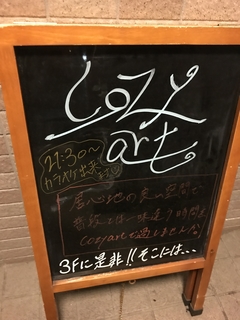 cozy
art
21:30〜
カラオケ出来ます
居心地の良い空間で
普段とは一味違う時間を
cozyartで過しませんか
3Fに是非!!そこには、、、